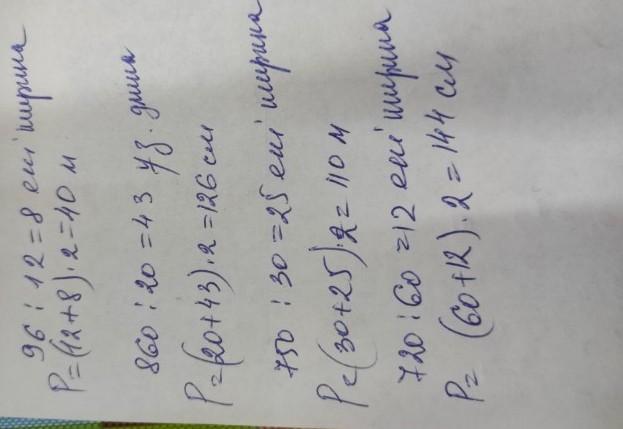 96 : 12 = 8 ені ширина
P=(12+8)·2=40 м
860 : 20 = 43 ұз. длина
P=(20+43)·2=126 см
750 : 30 = 25 ені ширина
P=(30+25)·2=110 м
720 : 60 = 12 ені ширина
P= (60+12)·2=144 см